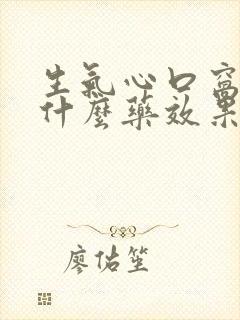 生氣心口窩
什麼藥效果
廖佑笙